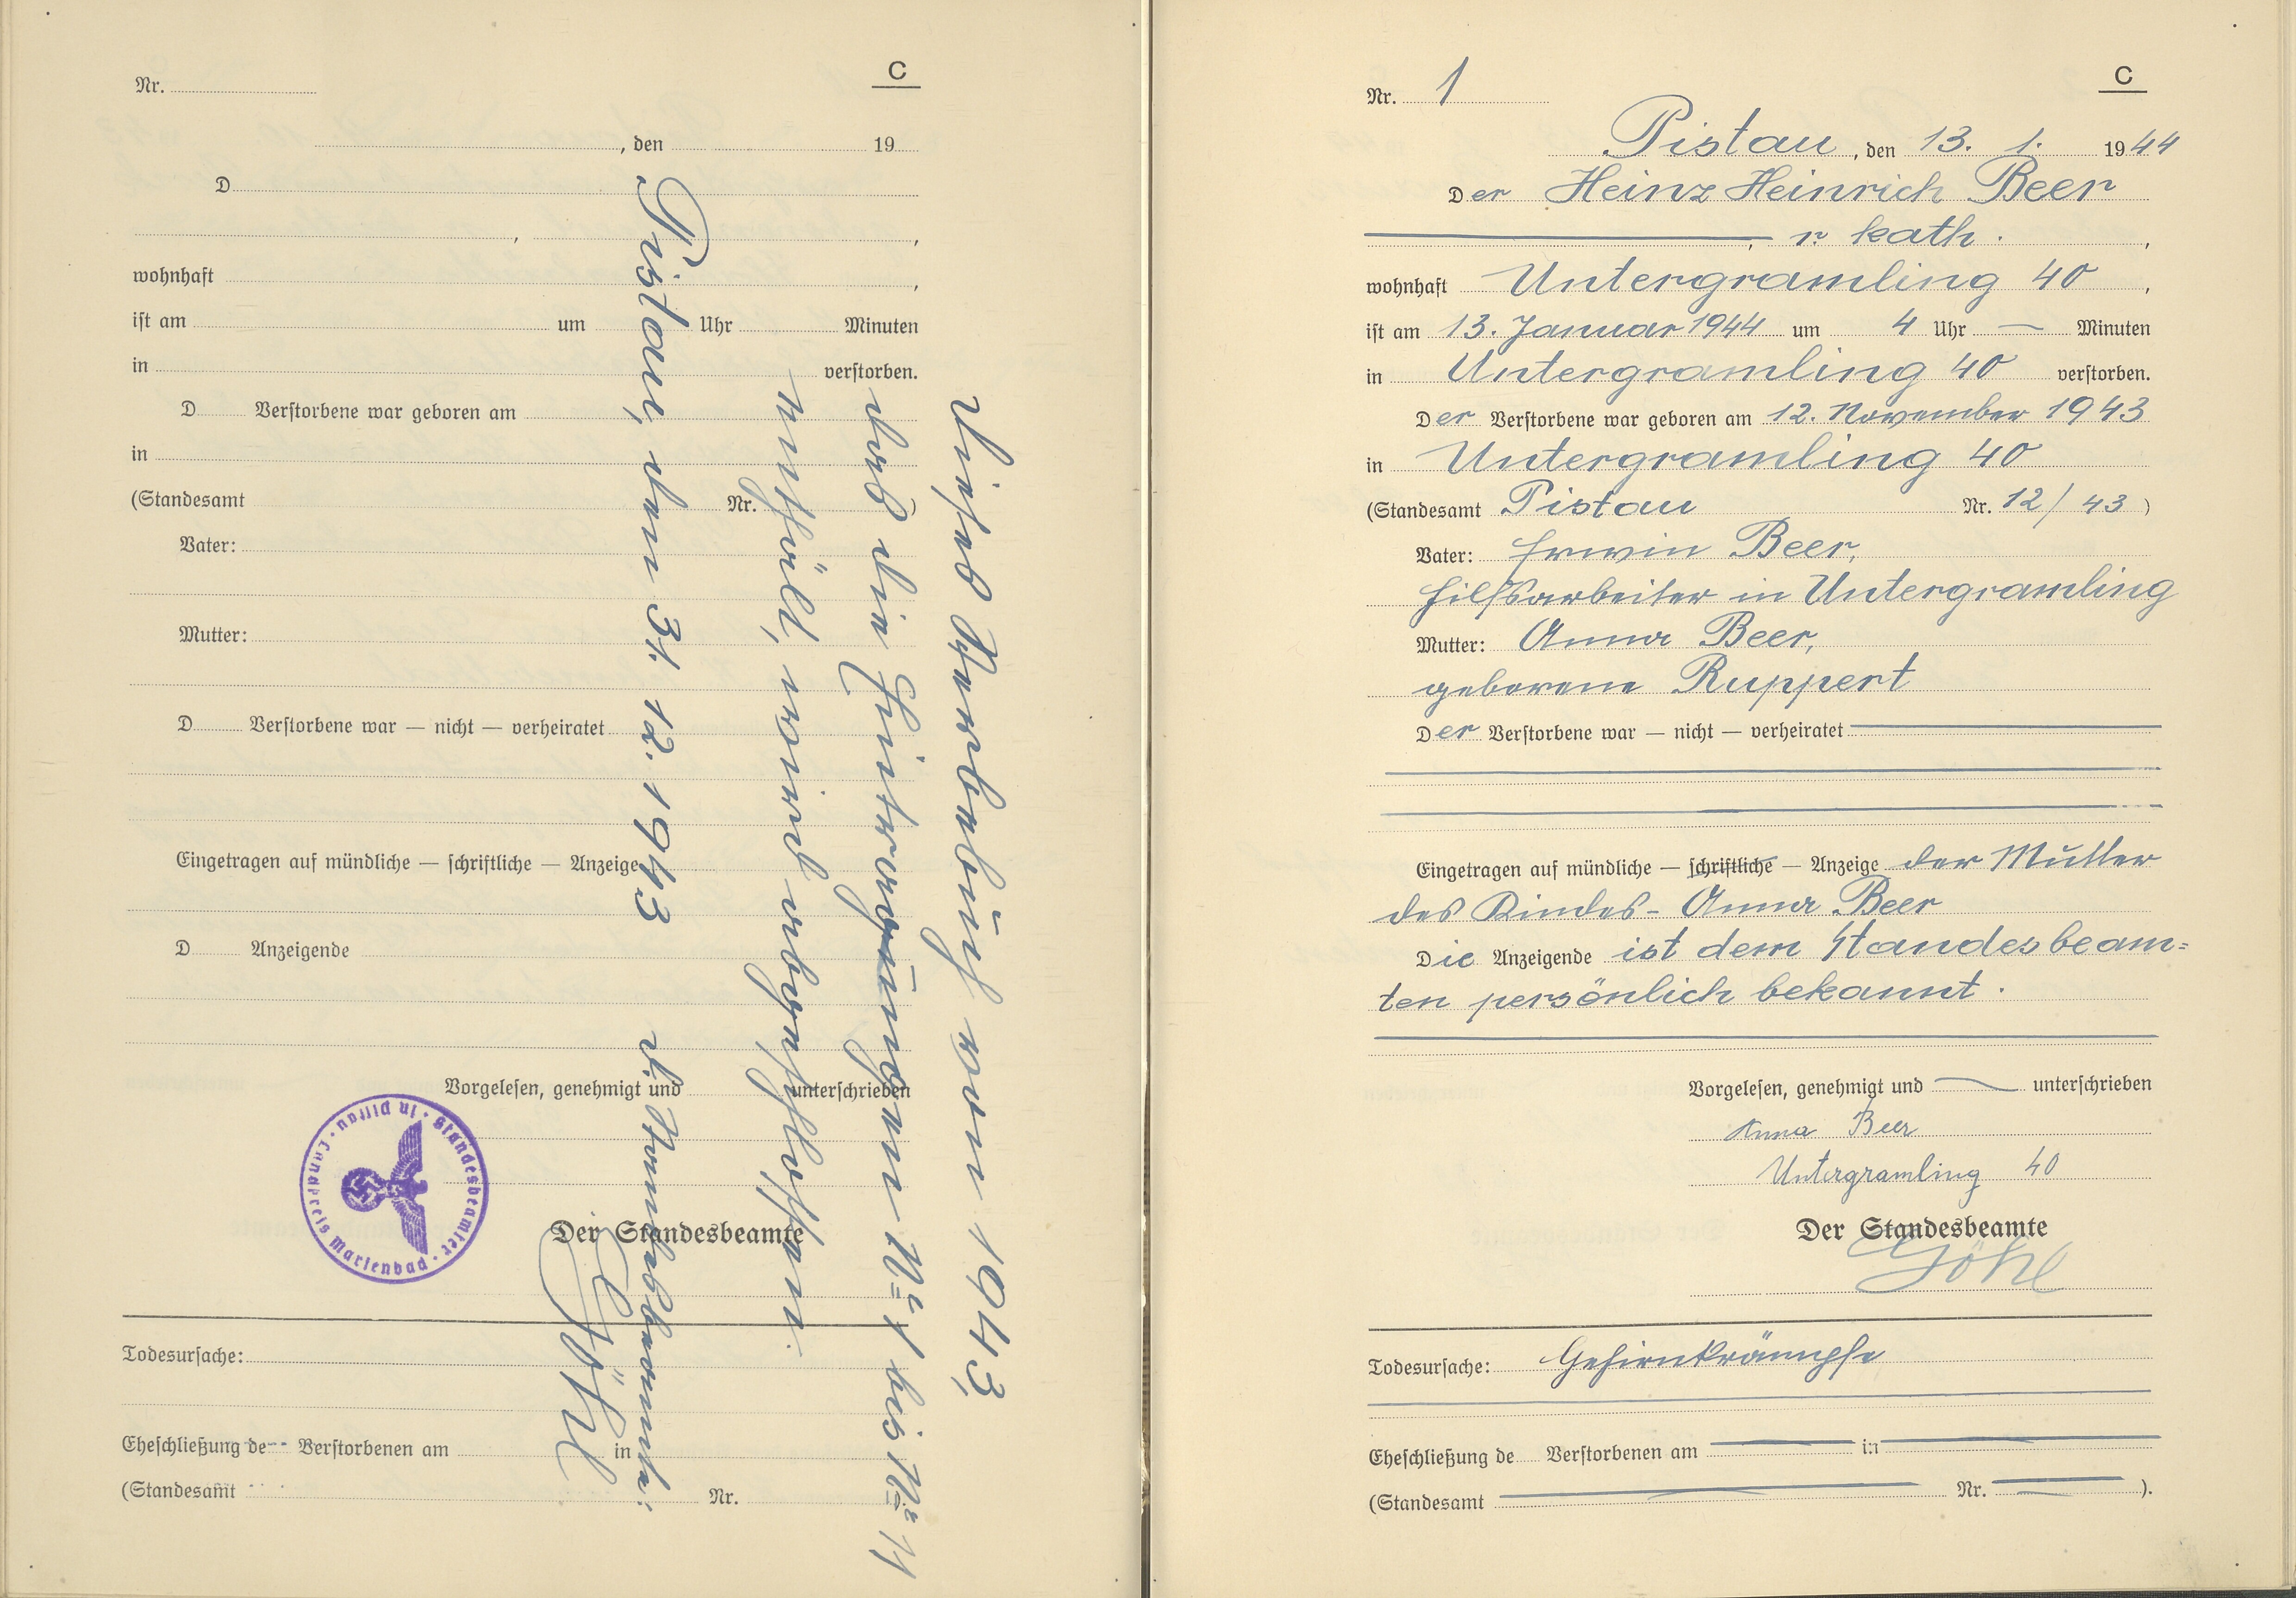 Nr.
C
, den 19
D
, ,
wohnhaft ,
ist am um Uhr Minuten
in verstorben.
D Verstorbene war geboren am
in
(Standesamt Nr. )
Vater:
Mutter:
D Verstorbene war — nicht — verheiratet
Eingetragen auf mündliche — schriftliche — Anzeige
D Anzeigende
Vorgelesen, genehmigt und unterschrieben
Der Standesbeamte
Todesursache:
Eheschließung de Verstorbenen am in
(Standesamt Nr.
Dieses Sterbebuch vom 1943
das die Eintragungen No 1 bis No 11
enthält, wird abgeschlossen.
Pistau, den 31. 12. 1943 D. Standesbeamte:
Göhl
Standesbeamter · Landkreis Marienbad · in Pistau ·
Nr. 1
C
Pistau, den 13. 1. 1944
Der Heinz Heinrich Beer
, r. kath. ,
wohnhaft Untergramling 40 ,
ist am 13. Januar 1944 um 4 Uhr — Minuten
in Untergramling 40 verstorben.
Der Verstorbene war geboren am 12. November 1943
in Untergramling 40
(Standesamt Pistau Nr. 12/43)
Vater: Erwin Beer,
Hilfsarbeiter in Untergramling
Mutter: Anna Beer,
geborene Ruppert
Der Verstorbene war — nicht — verheiratet
Eingetragen auf mündliche — schriftliche — Anzeige der Mutter
des Kindes - Anna Beer
Die Anzeigende ist dem Standesbeam=
ten persönlich bekannt.
Vorgelesen, genehmigt und — unterschrieben
Anna Beer
Untergramling 40
Der Standesbeamte
Göhl
Todesursache: Gehirnkrämpfe
Eheschließung de Verstorbenen am in
(Standesamt Nr. ).